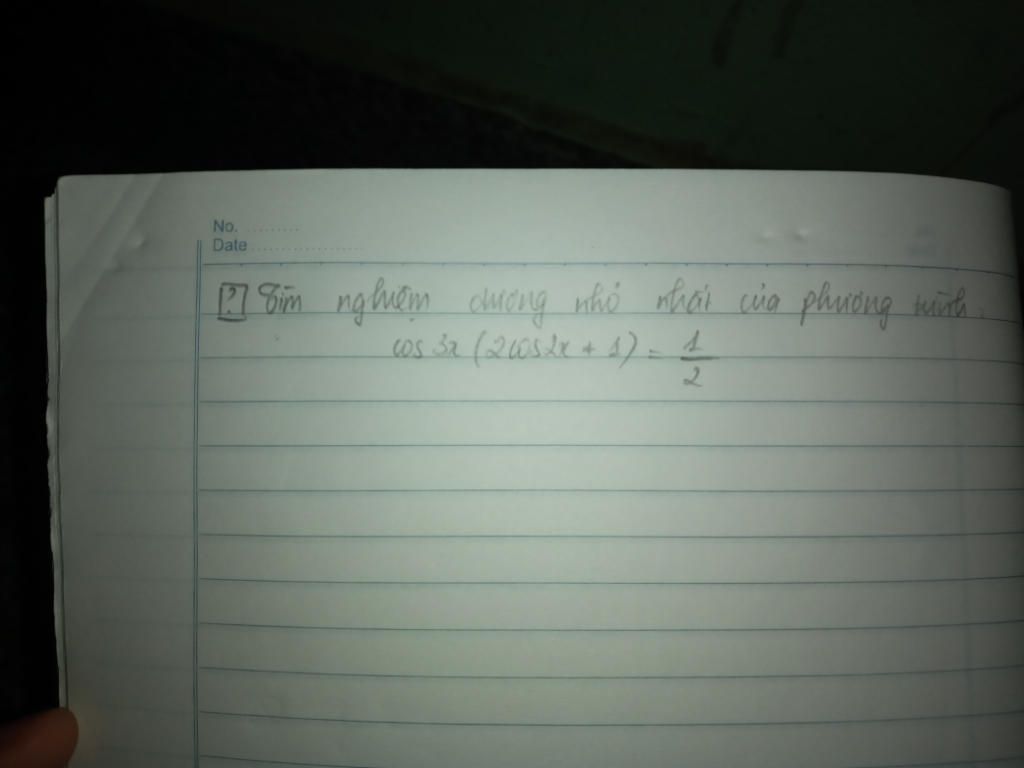 No. .........
Date ...................
[?] Tìm nghiệm dương nhỏ nhất của phương trình.
cos 3x (2cos2x + 1) = 1/2